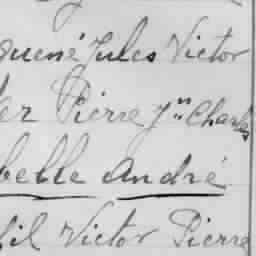 quené Jules Victor
er Pierre Jn Charles
belle André
fil Victor Pierre